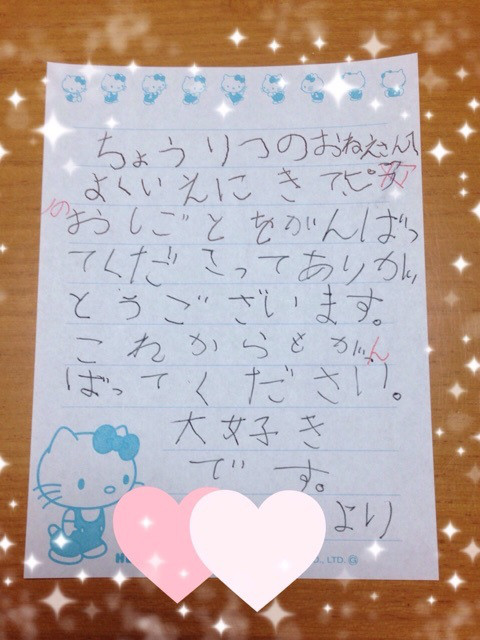 ちょうりつのおねえさんへ
よくいえにきてピア
のおしごとをがんばっ
てくださってありが
とうございます。
これからもがん
ばってください。
大好き
です。
より
CO., LTD.